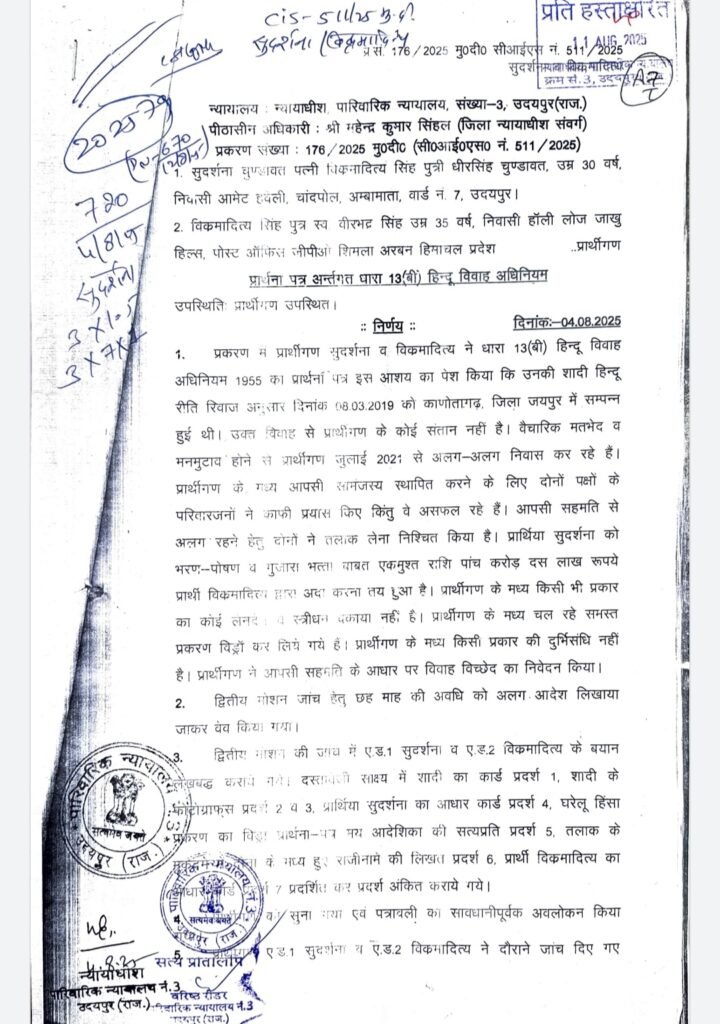 CIS-511/25 मु.दी.
सुदर्शना / विक्रमादित्य
प्रति हस्ताक्षरित
11 AUG 2025
क्रम सं.3, उदयपुर
A7
I
2025-79
720
4/8/25
सुदर्शना
प्र.सं. 176/2025 मु0दी0 सीआईएस नं. 511/2025
न्यायालय : न्यायाधीश, पारिवारिक न्यायालय, संख्या–3, उदयपुर(राज.)
पीठासीन अधिकारी : श्री महेन्द्र कुमार सिंहल (जिला न्यायाधीश संवर्ग)
प्रकरण संख्या : 176/2025 मु0दी0 (सी0आई0एस0 नं. 511/2025)
1. सुदर्शना चुण्डावत पत्नी विक्रमादित्य सिंह पुत्री धीरसिंह चुण्डावत, उम्र 30 वर्ष,
निवासी आमेट हवेली, चांदपोल, अम्बामाता, वार्ड नं. 7, उदयपुर।
2. विकमादित्य सिंह पुत्र स्व. वीरभद्र सिंह उम्र 35 वर्ष, निवासी हॉली लोज जाखु
हिल्स, पोस्ट ऑफिस जीपीओ शिमला अरबन हिमाचल प्रदेश ..प्रार्थीगण
प्रार्थना पत्र अर्न्तगत धारा 13(बी) हिन्दू विवाह अधिनियम
उपस्थितिः प्रार्थीगण उपस्थित।
:: निर्णय :: दिनांकः–04.08.2025
1. प्रकरण में प्रार्थीगण सुदर्शना व विकमादित्य ने धारा 13(बी) हिन्दू विवाह
अधिनियम 1955 का प्रार्थना पत्र इस आशय का पेश किया कि उनकी शादी हिन्दू
रीति रिवाज अनुसार दिनांक 08.03.2019 को काणोतागढ़, जिला जयपुर में सम्पन्न
हुई थी। उक्त विवाह से प्रार्थीगण के कोई संतान नहीं है। वैचारिक मतभेद व
मनमुटाव होने से प्रार्थीगण जुलाई 2021 से अलग-अलग निवास कर रहे हैं।
प्रार्थीगण के मध्य आपसी सामंजस्य स्थापित करने के लिए दोनों पक्षों के
परिवारजनों ने काफी प्रयास किए किंतु वे असफल रहे हैं। आपसी सहमति से
अलग रहने हेतु दोनों ने तलाक लेना निश्चित किया है। प्रार्थिया सुदर्शना को
भरण–पोषण व गुजारा भत्ता बाबत एकमुश्त राशि पांच करोड़ दस लाख रूपये
प्रार्थी विकमादित्य द्वारा अदा करना तय हुआ है। प्रार्थीगण के मध्य किसी भी प्रकार
का कोई लेनदेन व स्त्रीधन बकाया नहीं है। प्रार्थीगण के मध्य चल रहे समस्त
प्रकरण विड्रॉ कर लिये गये हैं। प्रार्थीगण के मध्य किसी प्रकार की दुर्भिसंधि नहीं
है। प्रार्थीगण ने आपसी सहमति के आधार पर विवाह विच्छेद का निवेदन किया।
2. द्वितीय मोशन जांच हेतु छह माह की अवधि को अलग आदेश लिखाया
जाकर वेव किया गया।
3. द्वितीय मोशन की जांच में ए.ड.1 सुदर्शना व ए.ड.2 विकमादित्य के बयान
लेखबद्ध कराये गये। दस्तावेजी साक्ष्य में शादी का कार्ड प्रदर्श 1, शादी के
फोटोग्राफ्स प्रदर्श 2 व 3, प्रार्थिया सुदर्शना का आधार कार्ड प्रदर्श 4, घरेलू हिंसा
प्रकरण का विड्रा प्रार्थना–पत्र मय आदेशिका की सत्यप्रति प्रदर्श 5, तलाक के
के मध्य हुए राजीनामे की लिखत प्रदर्श 6, प्रार्थी विकमादित्य का
आधार कार्ड 7 प्रदर्शित कर प्रदर्श अंकित कराये गये।
4. को सुना गया एवं पत्रावली का सावधानीपूर्वक अवलोकन किया
5. ए.ड.1 सुदर्शना व ए.ड.2 विकमादित्य ने दौराने जांच दिए गए
पारिवारिक न्यायालय सं. 3
सत्यमेव जयते
उदयपुर (राज.)
पारिवारिक न्यायालय नं. 3
सत्यमेव जयते
उदयपुर (राज.)
न्यायाधीश
पारिवारिक न्यायालय नं.3
उदयपुर(राज.)
सत्य प्रतिलिपि
वरिष्ठ रीडर
पारिवारिक न्यायालय नं.3
उदयपुर(राज.)